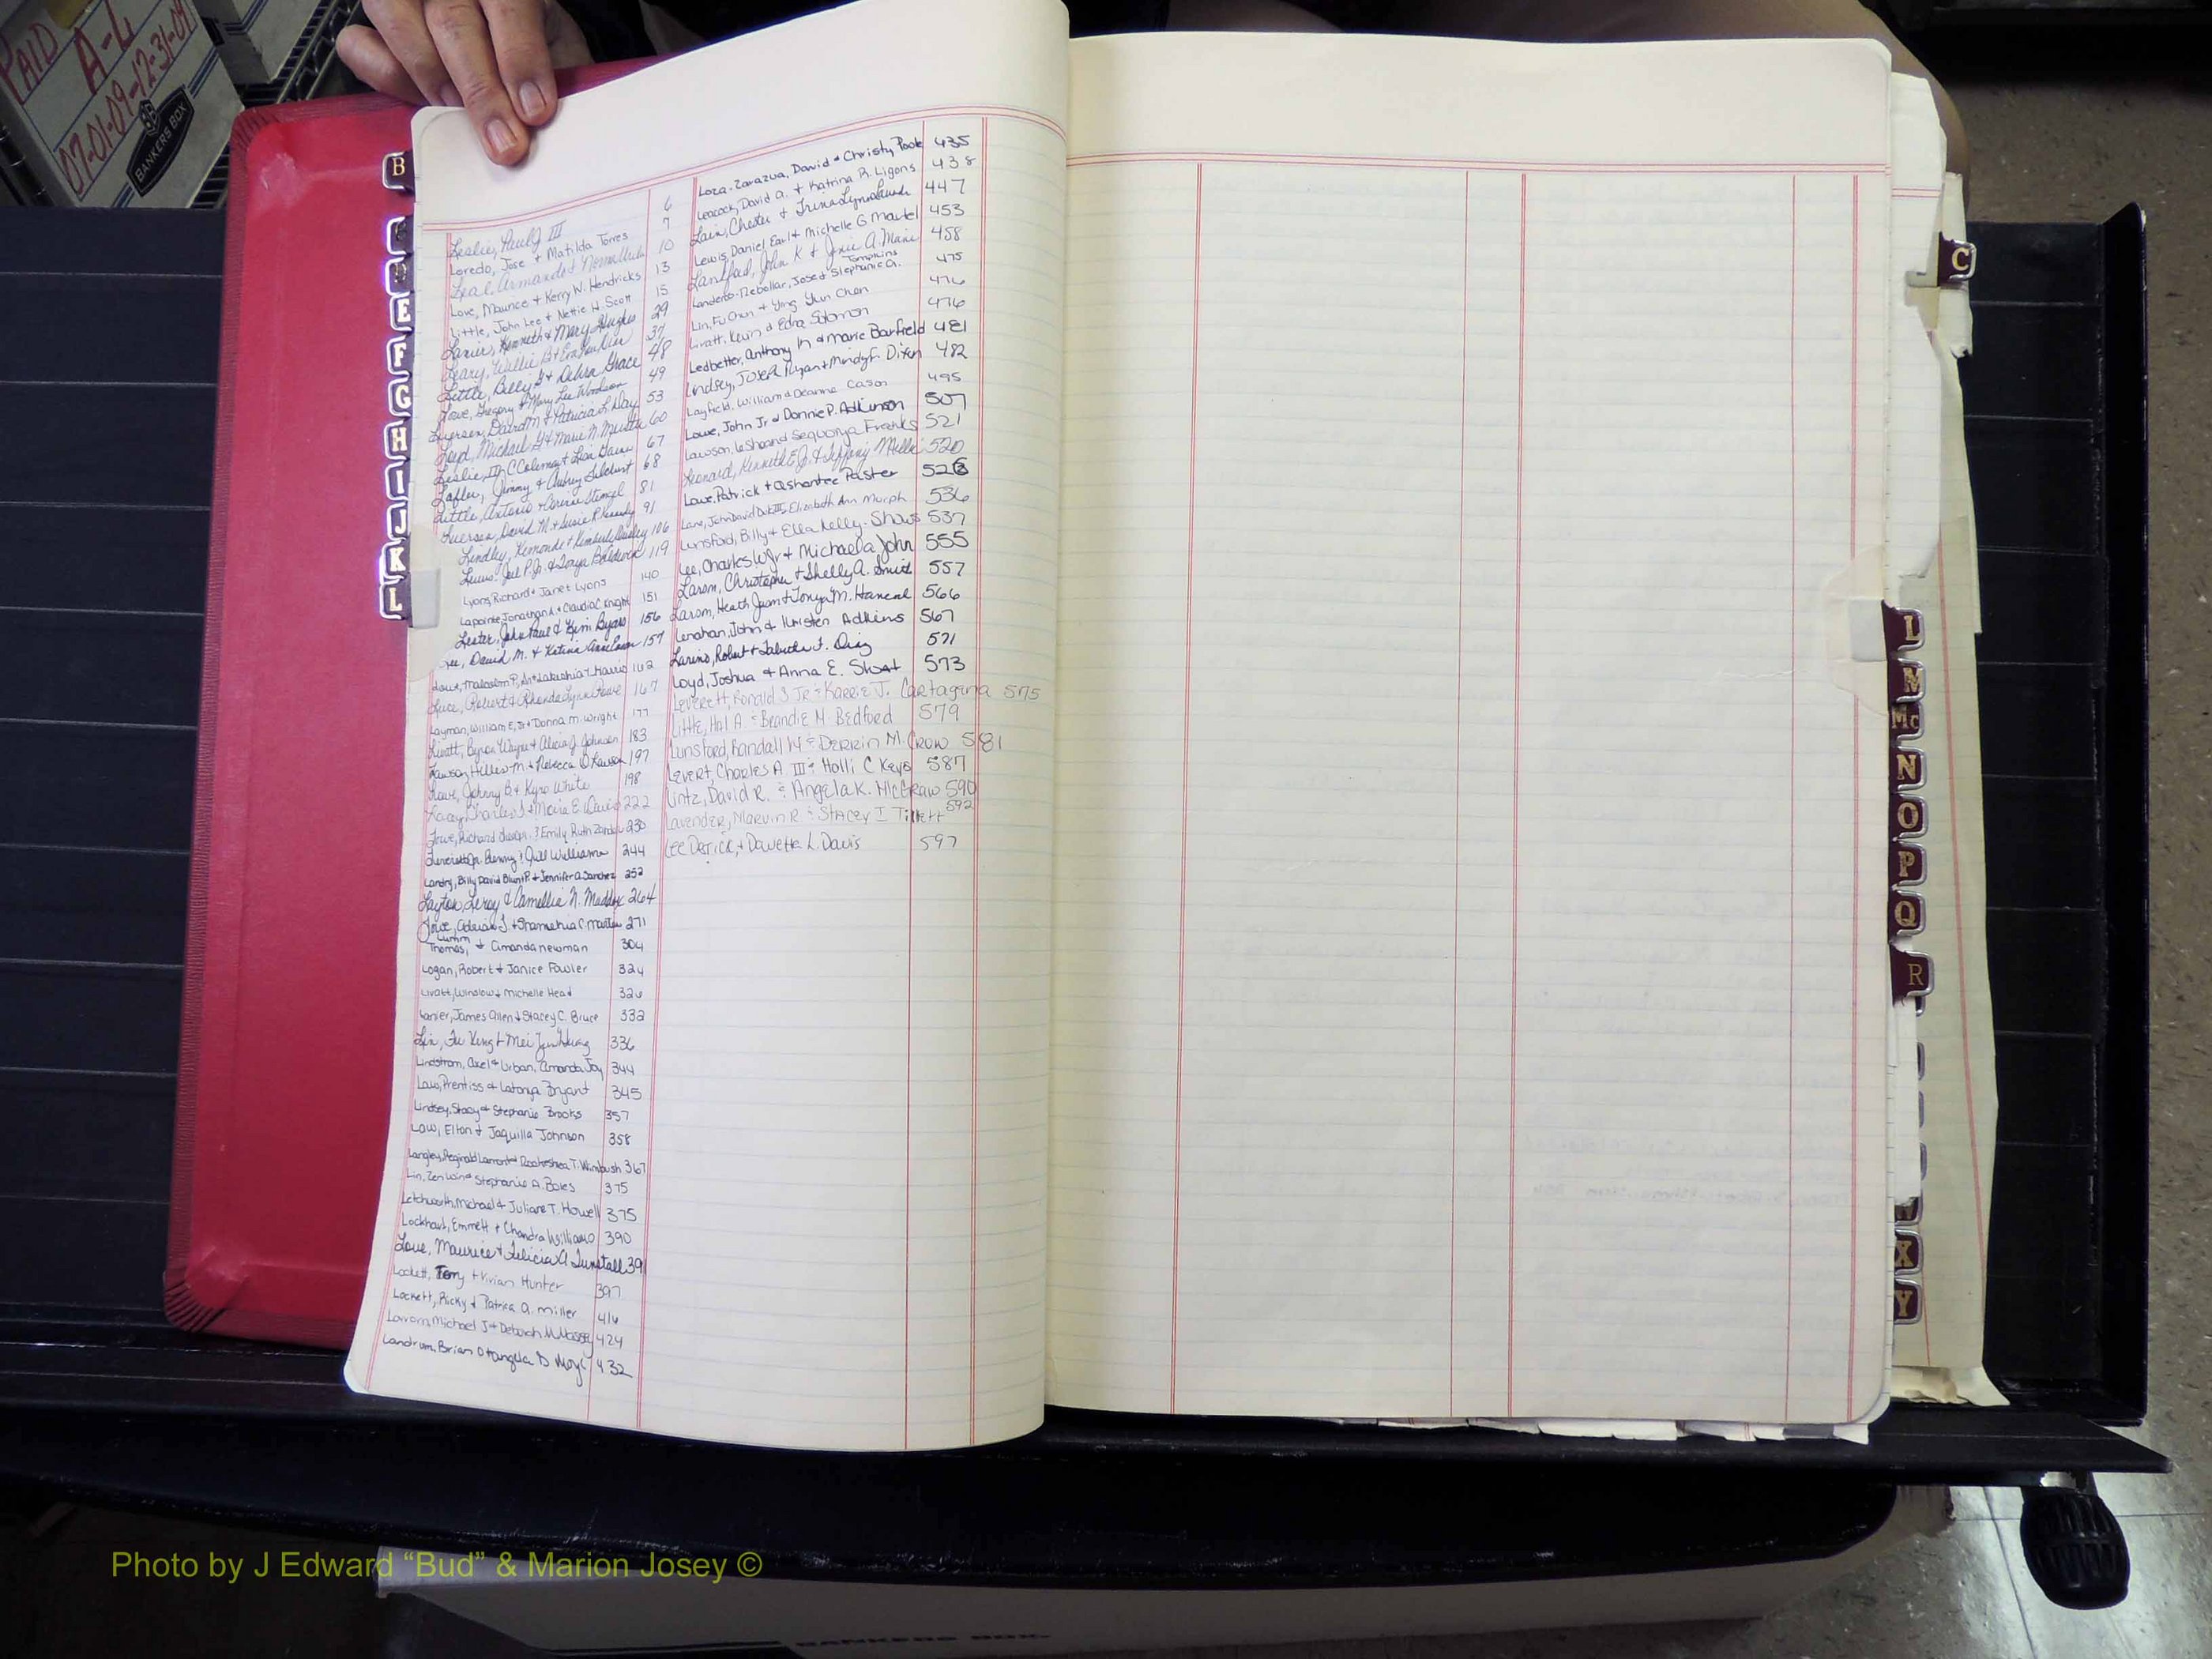 PAID
A-L
07-01-09-12-31-09
BANKERS BOX
B
E
F
G
H
I
J
K
L
Leslie, Paul J III 6
Loredo, Jose + Matilda Torres 7
Leal, Armando + 10
Love, Maurice + Kerry W. Hendricks 13
Little, John Lee + Nettie W. Scott 15
Lanier, Kenneth & Mary Hughes 29
Leary, Willie B + 37
Little, Billy G + Debra Grace 48
Lowe, Gregory & Mary Lee Woodson 49
Luersen, David M & Patricia L. Day 53
Loyd, Michael G + Marie N. 60
Leslie, III C Coleman + Lisa 67
Lafler, Jimmy & Audrey 68
Little, Antonio + Corrine Stengel 81
Luersen, David M. + Susie P. Kennedy 91
Lindley, Kemonde + Kimberle 106
Lewis, Joel P. Jr. + Tonya Baldwin 119
Lyons, Richard + Janet Lyons 140
Lapointe, Jonathan A. + Claudia C. Knight 151
Lester, John Paul & Kim Byars 156
Lee, David M. + Katina Ann 157
Lowe, Malcolm P. Jr + Lakeshia T. Harris 162
Luce, Robert & Rhonda Lynn 167
Layman, William E, Jr + Donna M. Wright 177
Livatt, Byron Wayne + Alicia J. Johnson 183
Lawson, Hillis M. + Rebecca D. Lawson 197
Lowe, Johnny B + Kyro White 198
Lacey, Charles S + Moira E. Davis 222
Lowe, Richard & Emily Ruth 230
Jr. Benny & Jill Williams 244
Landry, Billy David Blunt P. + Jennifer A. Sanchez 252
Layton, Leroy & Camellia N. Maddox 264
Love, Adrian J. + Shamekia C. Martin 271
Lumm
Thomas, + Amanda Newman 304
Logan, Robert + Janice Fowler 324
Livatt, Winslow + Michelle Head 326
Lanier, James Allen + Stacey C. Bruce 332
Lin, Fu Xing + Mei Jun Huang 336
Lindstrom, Axel + Urban, Amanda Joy 344
Law, Prentiss + Latonya Bryant 345
Lindsey, Stacy + Stephanie Brooks 357
Law, Elton + Jaquilla Johnson 358
Langley, Reginald Lamont + T. Wimbush 367
Lin, Zen Win + Stephanie A. Boles 375
Letchworth, Michael & Juliane T. Howell 375
Lockhart, Emmett + Chandra Williams 390
Love, Maurice + Felicia A. Tunstall 391
Lockett, Tony + Vivian Hunter 397
Lockett, Ricky + Patrica A. Miller 416
Lovvorn, Michael J + Deborah M. Massey 424
Landrum, Brian O + Angela D 432
Loza-Zarazua, David + Christy Poole 435
Leacock, David A. + Katrina R. Ligons 438
Lain, Chester + Trina Lynn 447
Lewis, Daniel Earl + Michelle G Martel 453
Lankford, John K + A. Marie 458
Tompkins
Landeros-Rebollar, Jose + Stephanie A. 475
Lin, Fu Chun + Ying Yun Chen 476
Livatt, Kevin & Edna Solomon 476
Ledbetter, Anthony W & Marie Barfield 481
Lindsey, Joseph Ryan + Mindy F. Dixon 482
Layfield, William + Deanne Cason 495
Lowe, John Jr + Donnie P. Adkinson 507
Lawson, and Sequonya Franks 521
Leonard, Kenneth E Jr. & Tiffany Miller 520
Lowe, Patrick + Ashantee Paster 526
Lane, John David Elizabeth Ann Murph 536
Lunsford, Billy + Ella Kelly-Shows 537
Lee, Charles W Jr + Michaela John 555
Larsm, Christopher + Shelly A. Smith 557
Larsm, Heath Juan + Tonya M. 566
Lenahan, John & Kristen Adkins 567
Larino, Robert + Tabitha F. Diaz 571
Loyd, Joshua & Anna E. Sloat 573
Leverett, Ronald S Jr & Karrie J. Cartagena 575
Little, Hal A & Brandie M. Bedford 579
Lunsford, Randall W & Derrin M. Crow 581
Levert, Charles A. III & Holli C Keys 587
Lintz, David R. & Angela K. McGraw 590
Lavender, Marvin R. & Stacey I Tillett 592
Lee Derick, + Dawetta L. Davis 597
C
L
M
Mc
N
O
P
Q
R
W
X
Y
Photo by J Edward “Bud” & Marion Josey ©
BANKERS BOX